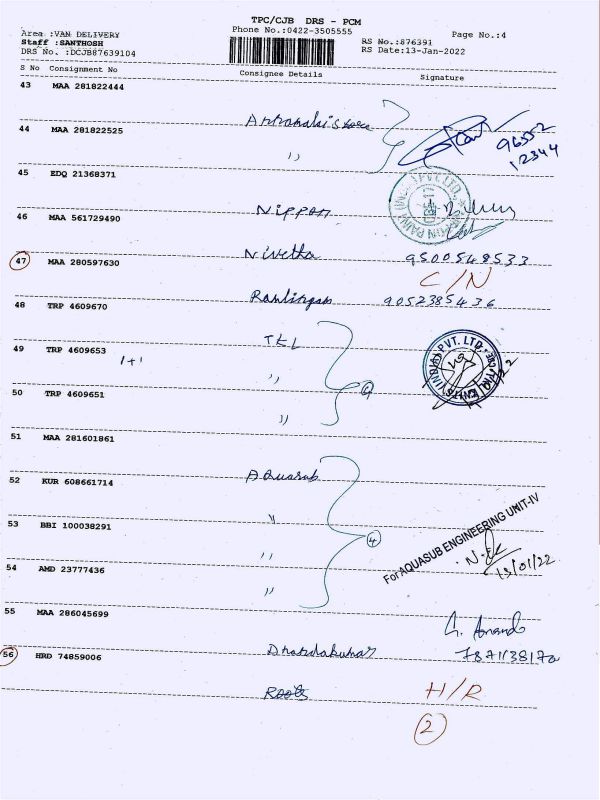 TPC/CJB DRS - PCM
Area :VAN DELIVERY Phone No.:0422-3505555 Page No.:4
Staff :SANTHOSH RS No.:876391
DRS No. :DCJB87639104 RS Date:13-Jan-2022
S No Consignment No Consignee Details Signature
43 MAA 281822444
44 MAA 281822525
96552
12344
45 EDQ 21368371
46 MAA 561729490 Nippon
47 MAA 280597630 Nivetha 9500548533
C/N
48 TRP 4609670 9052385436
49 TRP 4609653 TKL
1+1 ,,
50 TRP 4609651 ,,
51 MAA 281601861
52 KUR 608661714 Aquasub
53 BBI 100038291 ,,
For AQUASUB ENGINEERING UNIT-IV
4
13/01/22
54 AMD 23777436 ,,
55 MAA 286045699 ,,
56 HRD 74859006
Roots H/R
2